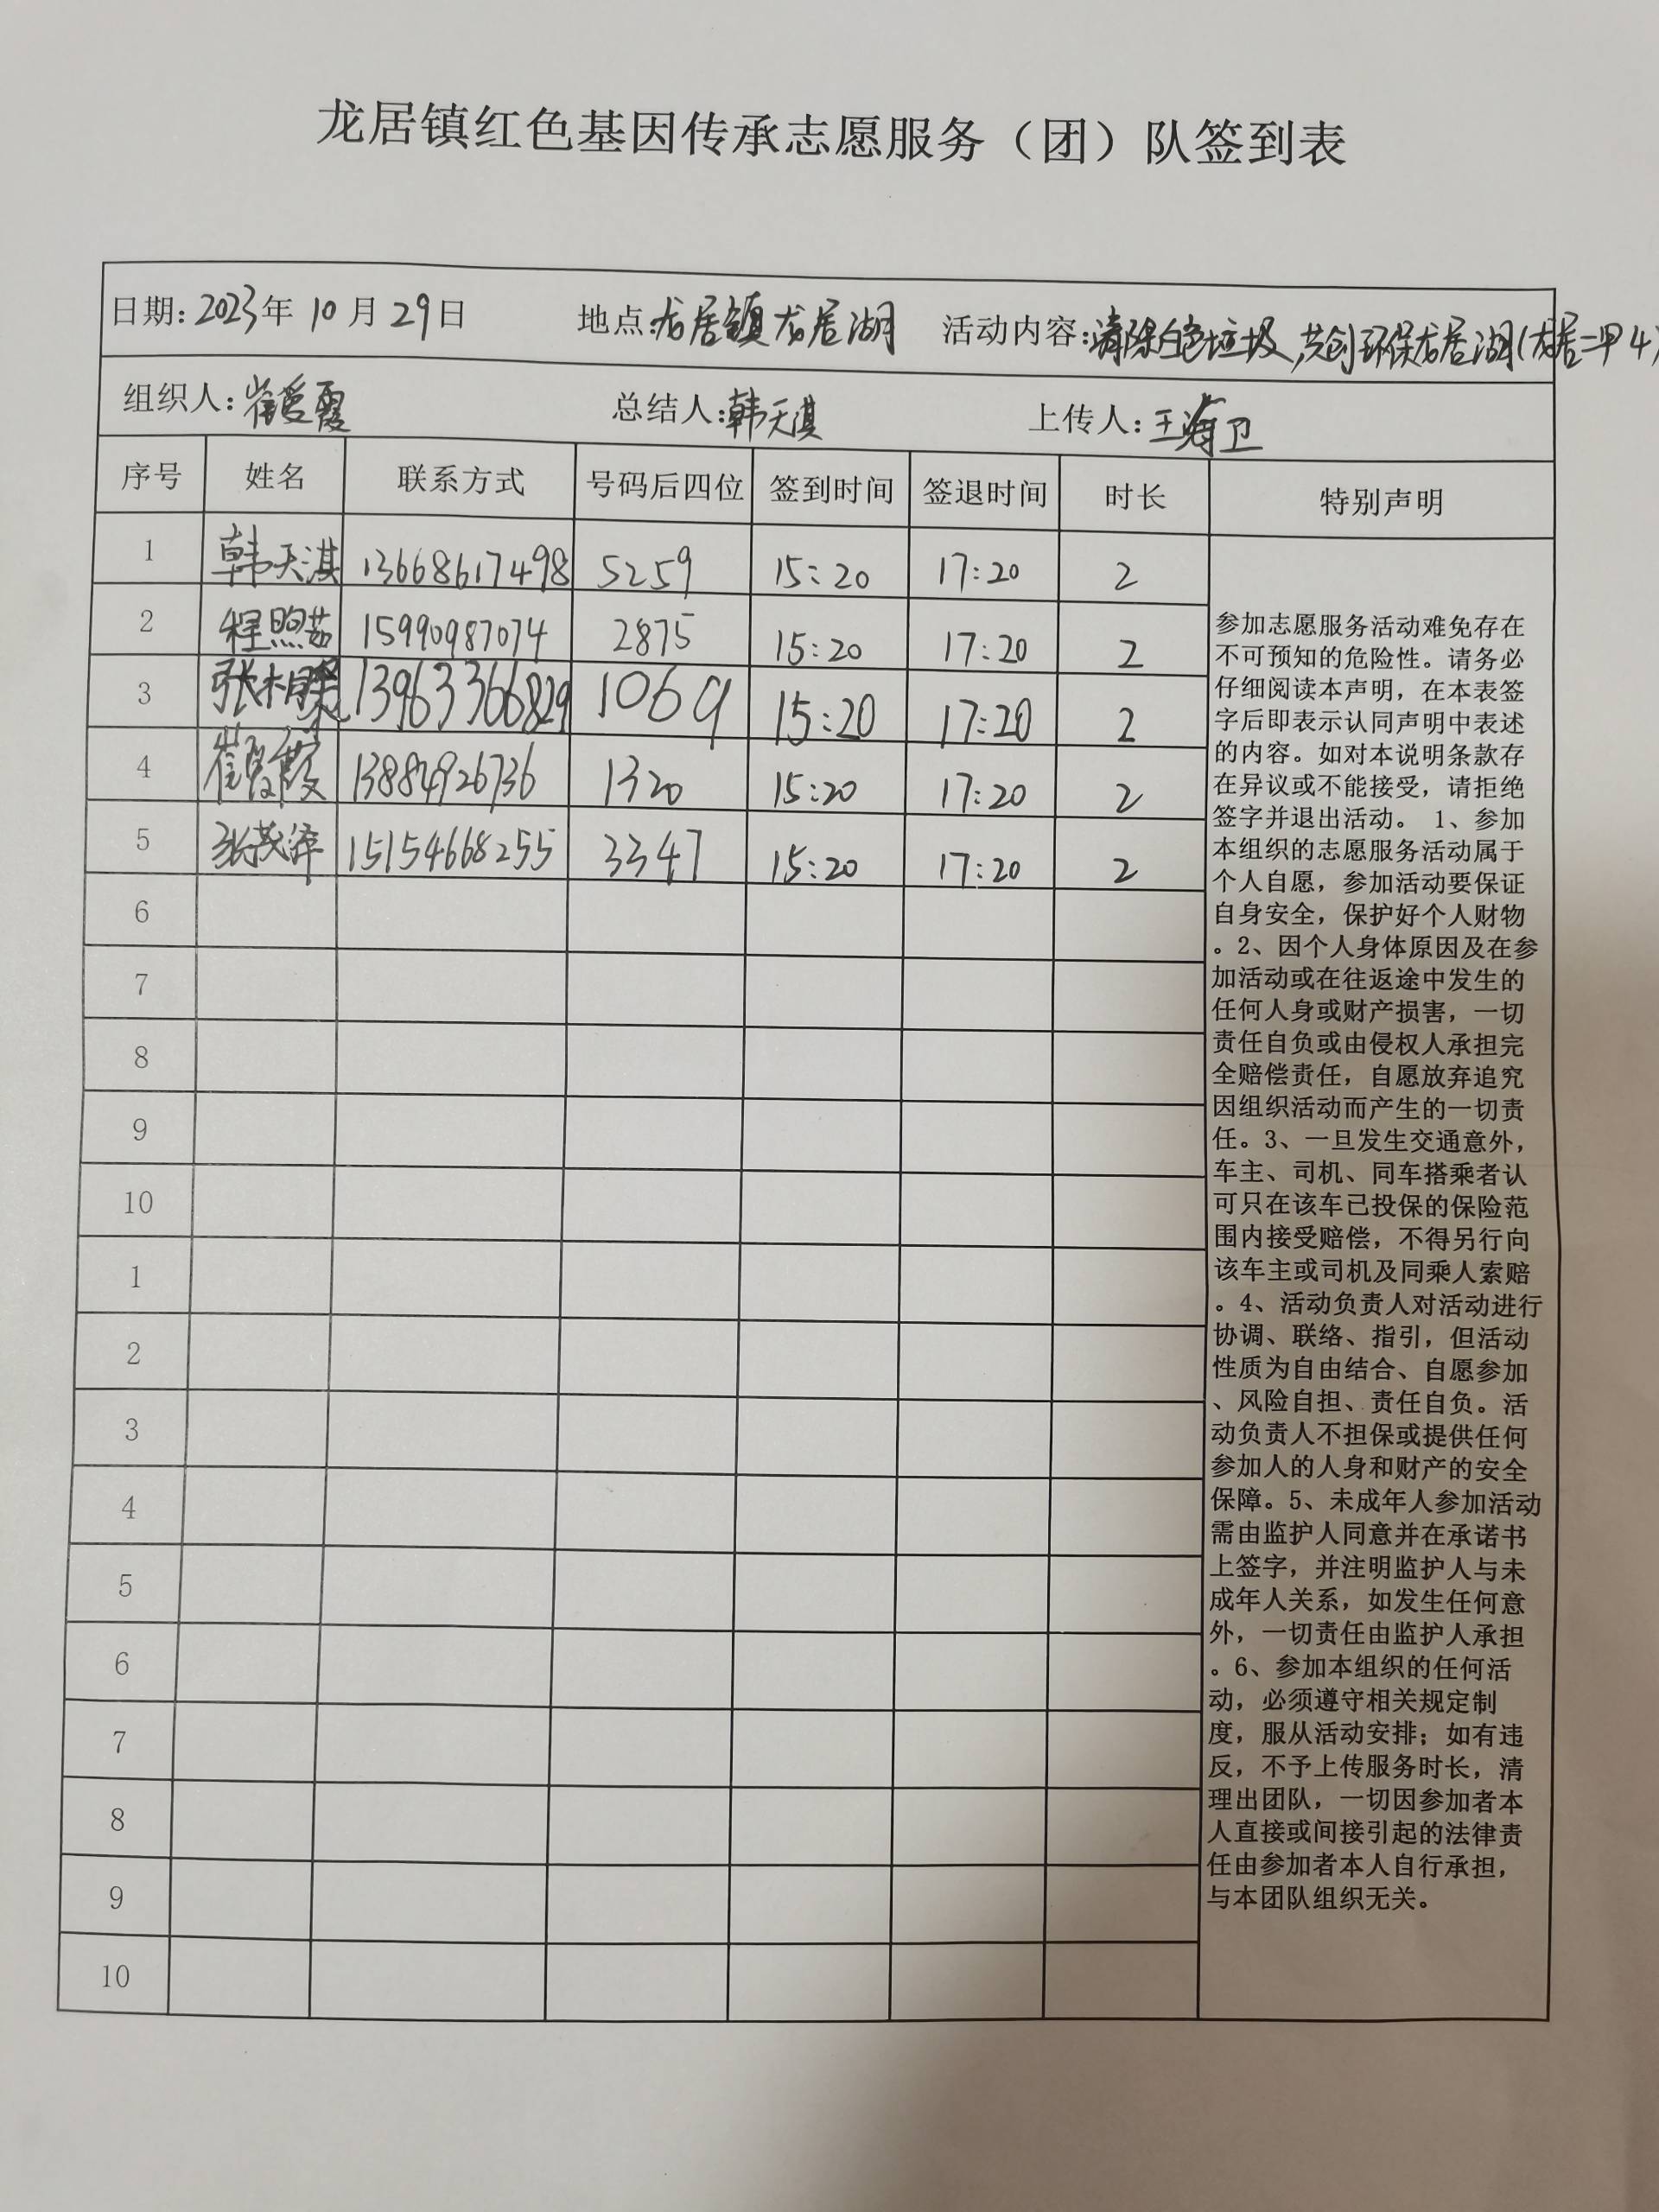 龙居镇红色基因传承志愿服务（团）队签到表
日期：2023年 10 月 29日 地点：龙居镇龙居湖 活动内容：清除白色垃圾，共创环保龙居湖（龙居二甲4）
组织人：崔爱霞 总结人：韩天淇 上传人：王海卫
序号 姓名 联系方式 号码后四位 签到时间 签退时间 时长 特别声明
1 韩天淇 13668617498 5259 15：20 17：20 2
2 程照茹 15990987074 2875 15：20 17：20 2
3 张相 13963366829 1069 15：20 17：20 2
4 崔爱霞 13884926736 1320 15：20 17：20 2
5 张茂泽 15154668255 3347 15：20 17：20 2
6
7
8
9
10
1
2
3
4
5
6
7
8
9
10
参加志愿服务活动难免存在
不可预知的危险性。请务必
仔细阅读本声明，在本表签
字后即表示认同声明中表述
的内容。如对本说明条款存
在异议或不能接受，请拒绝
签字并退出活动。 1、参加
本组织的志愿服务活动属于
个人自愿，参加活动要保证
自身安全，保护好个人财物
。2、因个人身体原因及在参
加活动或在往返途中发生的
任何人身或财产损害，一切
责任自负或由侵权人承担完
全赔偿责任，自愿放弃追究
因组织活动而产生的一切责
任。3、一旦发生交通意外，
车主、司机、同车搭乘者认
可只在该车已投保的保险范
围内接受赔偿，不得另行向
该车主或司机及同乘人索赔
。4、活动负责人对活动进行
协调、联络、指引，但活动
性质为自由结合、自愿参加
、风险自担、责任自负。活
动负责人不担保或提供任何
参加人的人身和财产的安全
保障。5、未成年人参加活动
需由监护人同意并在承诺书
上签字，并注明监护人与未
成年人关系，如发生任何意
外，一切责任由监护人承担
。6、参加本组织的任何活
动，必须遵守相关规定制
度，服从活动安排；如有违
反，不予上传服务时长，清
理出团队，一切因参加者本
人直接或间接引起的法律责
任由参加者本人自行承担，
与本团队组织无关。